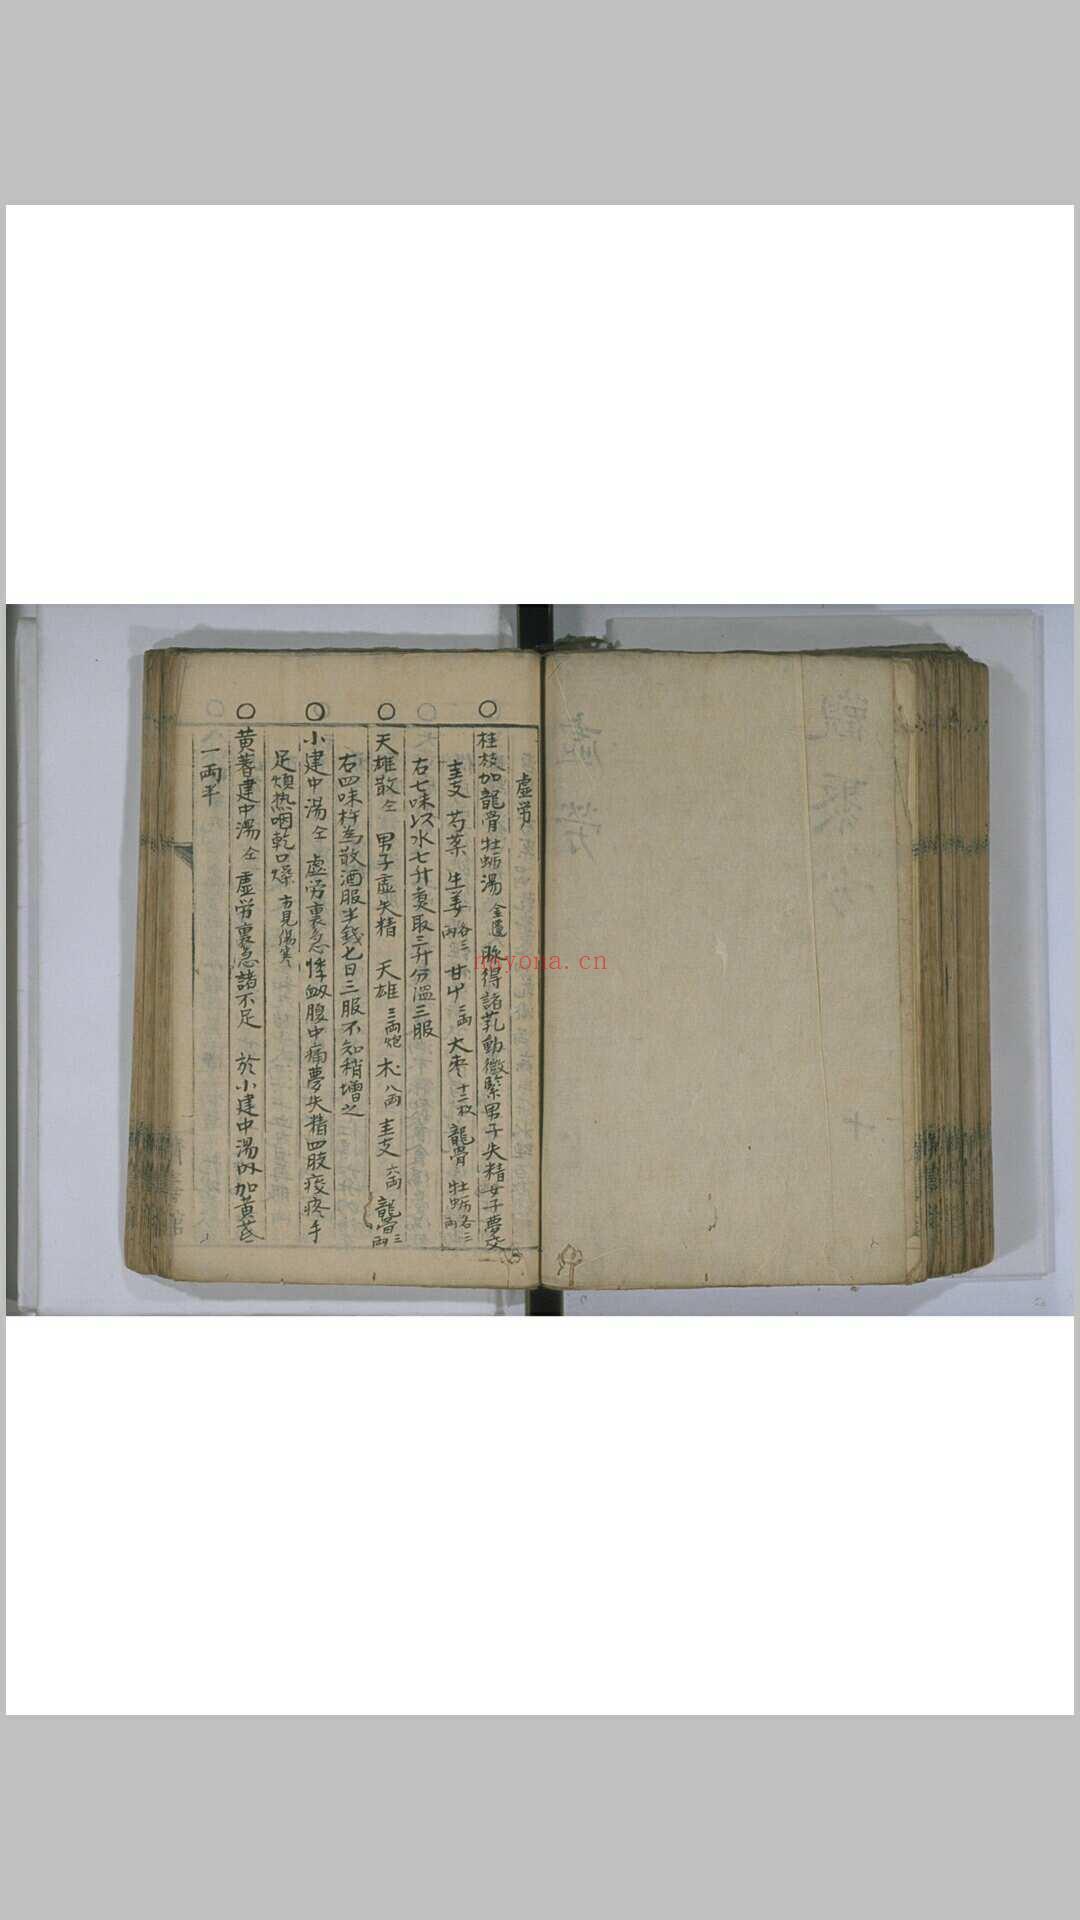 虚労
桂枝加龍骨牡蛎湯 金匱 脉得諸芤動微緊男子失精女子夢交
圭支 芍薬 生姜 各三両 甘艸 二両 大枣 十二枚 龍骨 牡蛎 各三両
右七味以水七升煑取三升分溫三服
天雄散 仝 男子虚失精 天雄 三両炮 朮 八両 圭支 六両 龍骨 三両
右四味杵為散酒服半錢匕日三服不知稍增之
小建中湯 仝 虚労裏急悸衂腹中痛夢失精四肢痠疼手
足煩热咽乾口燥 方見傷寒
黄蓍建中湯 仝 虚労裏急諸不足 於小建中湯內加黄芪
一両半
noyona.cn